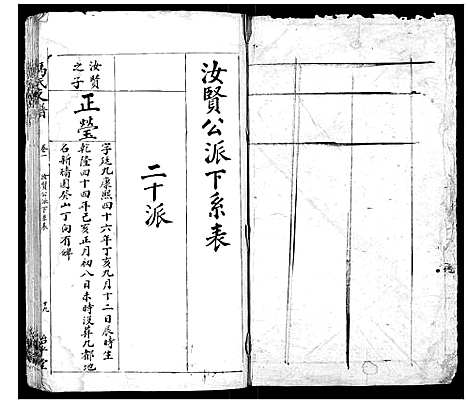 汝賢公派下系表
二十派
汝賢
之子
正瑩
字廷九康熙四十六年丁亥九月十二日辰時生
乾隆四十四年己亥正月初八日未時没葬九都地
名新墻園癸山丁向有碑
馮氏
卷一
汝賢公派下系表